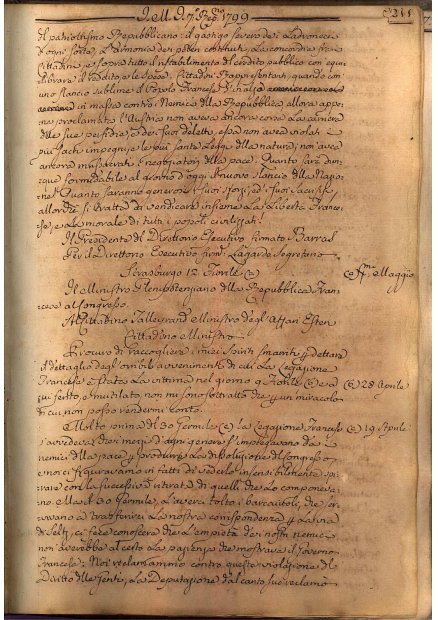 1799
211
il patriottismo Repubblicano: il gastigo severo de i Ladronecci
d'ogni sorta, L'armonia dei poteri costituiti, La concordia fra i
Cittadini, e sopra tutto il ristabilimento del credito pubblico con equi
librare il reddito, e le spese. Cittadini Rappresentanti, quando con
uno slancio sublime il Popolo Francese
in massa contro i Nemici della Repubblica, allora appe
na proclamata, l'Austria non aveva ancora corse La carriera
delle sue perfidie, e dei suoi delitti, essa non aveva violati i
più sacri impegni, e le più sante Leggi della natura; non aveva
ancora massacrati i negoziatori della pace. Quanto sarà dun
que formidabile al grido d'oggi il nuovo slancio della Nazio
ne! Quanto saranno generosi i suoi sforzi, ed i suoi sacrifizj,
allorchè si tratta di vendicare insieme La Libertà France
se, e la morale di tutti i popoli civilizzati!
Il Presidente del Direttorio Esecutivo firmato Barras
Per il Direttorio Esecutivo firm. Lagarde Segretario
Strasburgo 12 Fiorile (a)
(a) Pmo Maggio
Il Ministro Plenipotenziario della Repubblica Fran
cese al Congresso.
Al Cittadino Talleyrand Ministro degl'Affari Esteri
Cittadino Ministro
Procuro di raccogliere i miei spiriti smarriti p dettare
il dettaglio degl'orribili avvenimenti di cui La Legazione
Francese è stata La vittima nel giorno 9 Fiorile (b) e a
(b) 28 Aprile
cui ferito, e mutilato, non mi sono sottratto che p un miracolo
di cui non posso rendermi conto.
Molto prima di 30 Germile (c) la Legazione Francese
(c) 19 Aprile
s'avvedeva, che i mezzi d'ogni genere s'impiegavano da i
nemici della pace p produrre La dissoluzione del Congresso
e noi ci figuravamo in fatti di vederlo insensibilmente spi
rare con la successiva ritirata di quelli che Lo componeva
no. Ma il 30 Germile, L'averci tolti i barcaioli, che ser
vivano a trasferire La nostra corrispondenza p La via
di Seltz, ci fece conoscere che L'empietà dei nostri nemici
non averebbe al certo La pazienza che mostrava il Governo
Francese. Noi reclamammo contro questa violazione del
Diritto delle Genti, La Deputazione dal canto suo reclamò